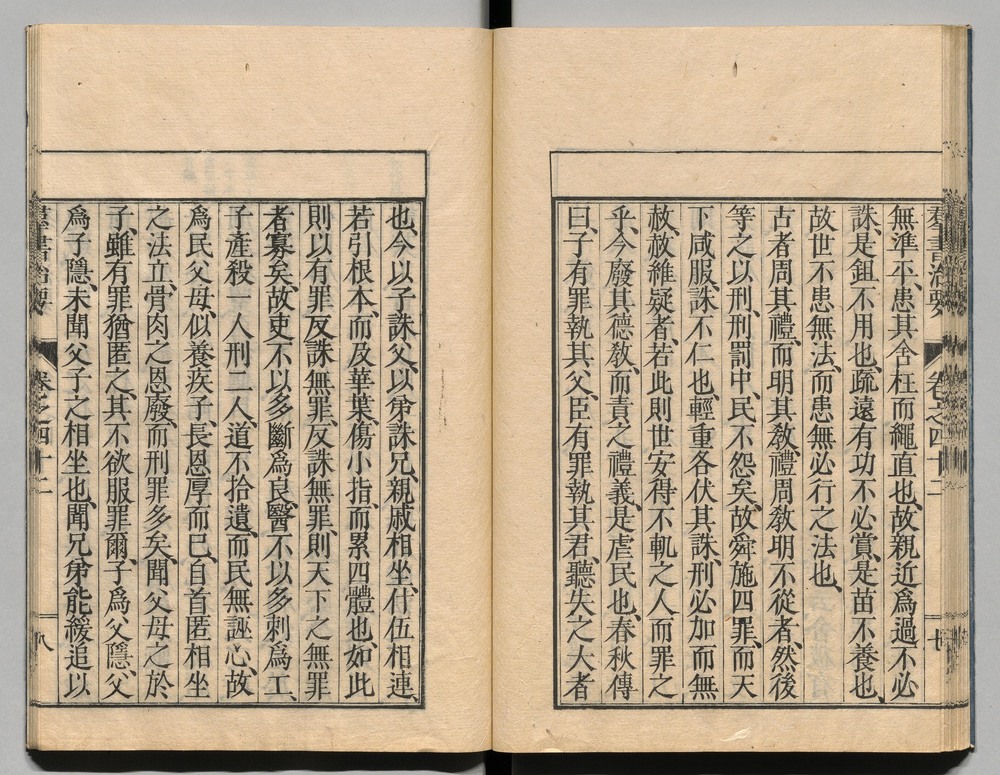 羣書治要 卷之四十二 十七
無準平、患其舍枉而繩直也、故親近爲過不必
誅、是鉏不用也、疏遠有功不必賞、是苗不養也、
故世不患無法、而患無必行之法也、
古者周其禮、而明其教、禮周教明不從者、然後
等之以刑、刑罰中、民不怨矣、故舜施四罪、而天
下咸服、誅不仁也、輕重各伏其誅、刑必加而無
赦、赦維疑者、若此則世安得不軌之人而罪之
乎、今廢其德教、而責之禮義、是虐民也、春秋傳
曰、子有罪執其父、臣有罪執其君、聽失之大者
也、今以子誅父、以弟誅兄、親戚相坐、什伍相連、
若引根本、而及華葉、傷小指、而累四體也、如此
則以有罪反誅無罪、反誅無罪、則天下之無罪
者寡矣、故吏不以多斷爲良、醫不以多刺爲工、
子產殺一人刑二人、道不拾遺、而民無誣心、故
爲民父母、似養疾子、長恩厚而已、自首匿相坐
之法立、骨肉之恩廢、而刑罪多矣、聞父母之於
子、雖有罪猶匿之、其不欲服罪爾、子爲父隱、父
爲子隱、未聞父子之相坐也、聞兄弟能緩追以
羣書治要 卷之四十二 十八